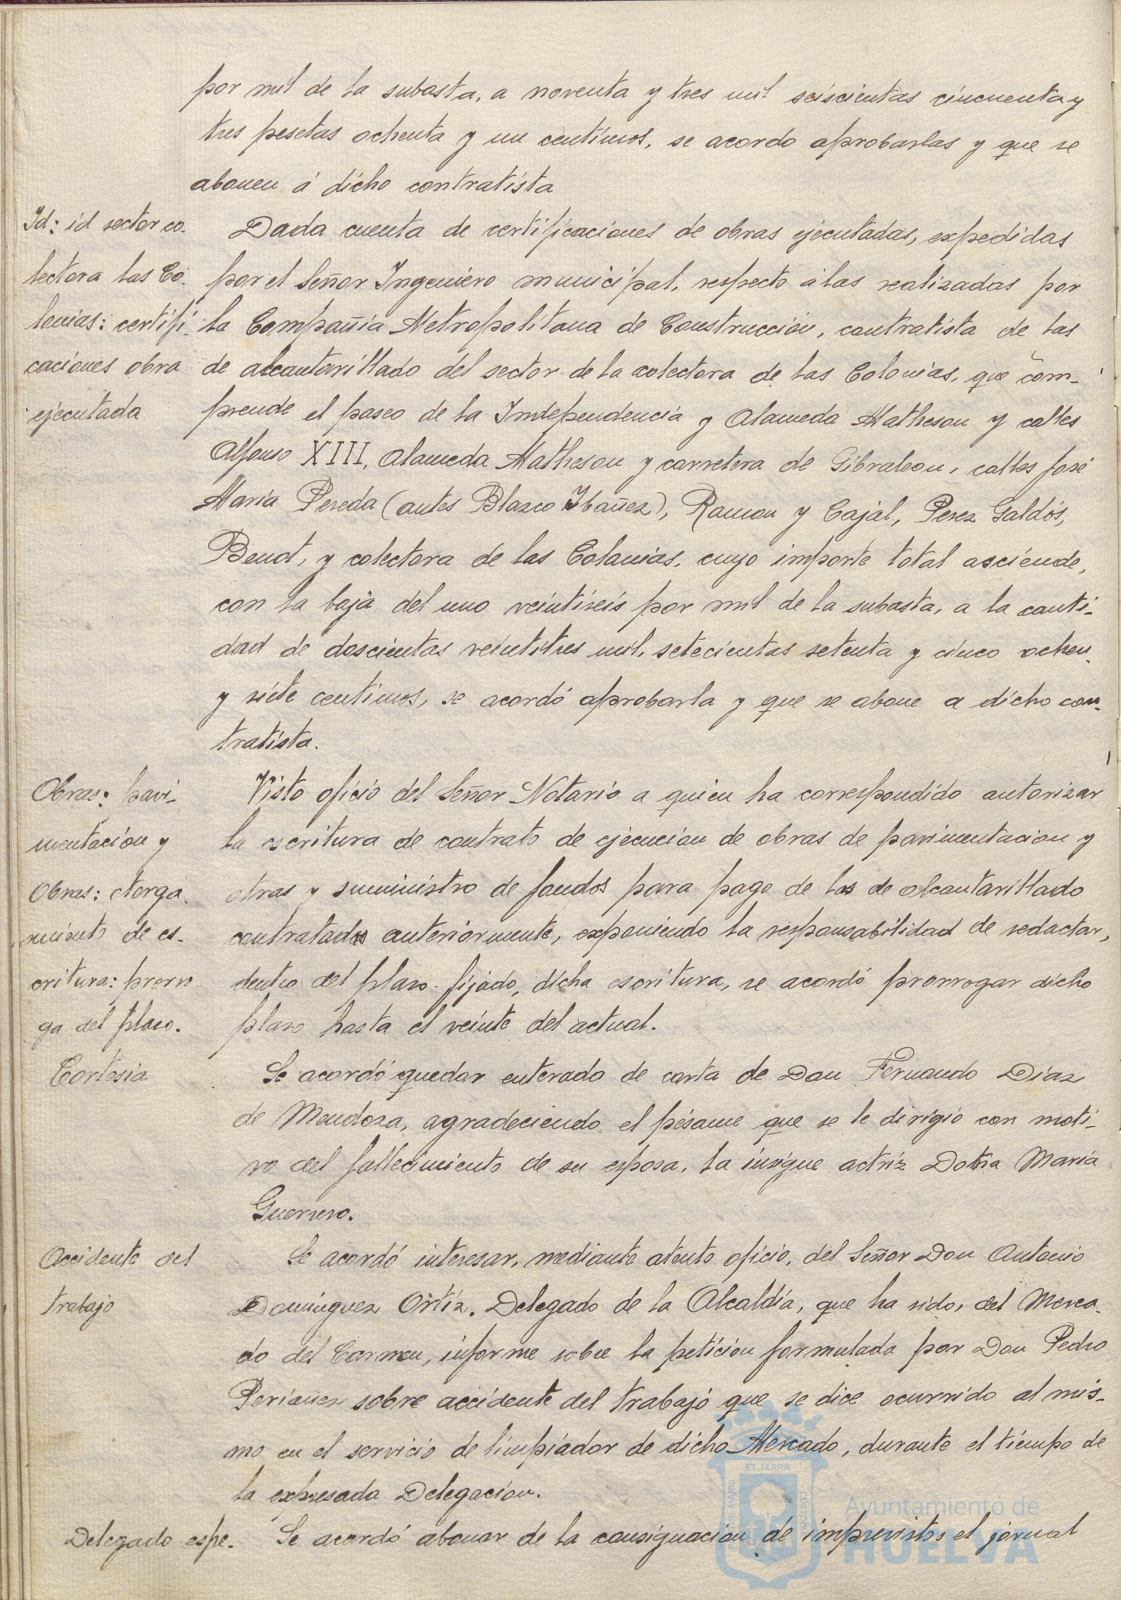 por mil de la subasta, a noventa y tres mil seiscientas cincuenta y
tres pesetas ochenta y un centimos, se acordo aprobarlas y que se
abonen á dicho contratista
Id: id sector co-
lectora las Co-
lonias: certifi-
caciones obra
ejecutada
Dada cuenta de certificaciones de obras ejecutadas, expedidas
por el Señor Ingeniero municipal, respecto a las realizadas por
la Compañia Metropolitana de Construcción, contratista de las
de alcantarillado del sector de la colectora de las Colonias, que com-
prende el paseo de la Independencia y Alameda Matheson y calles
Alfonso XIII, Alameda Matheson y carretera de Gibraleon, calles José
Maria Pereda (antes Blasco Ibañez), Ramon y Cajal, Perez Galdós,
Benot, y colectora de las Colonias, cuyo importe total asciende,
con la baja del uno veintiseis por mil de la subasta, a la canti-
dad de doscientas veintitres mil, setecientas setenta y cinco ochen-
y siete centimos, se acordó aprobarla y que se abone a dicho con-
tratista.
Obras: pavi-
mentación y
Obras: otorga-
miento de es-
critura: prorro
ga del plazo.
Visto oficio del Señor Notario a quien ha correspondido autorizar
la escritura de contrato de ejecucion de obras de pavimentacion y
otras y suministro de fondos para pago de las de alcantarillado
contratados anteriormente, exponiendo la responsabilidad de redactar,
dentro del plazo fijado, dicha escritura, se acordó prorrogar dicho
plazo hasta el veinte del actual.
Cortesia
Se acordó quedar enterado de carta de Don Fernando Diaz
de Mendoza, agradeciendo el pésame que se le dirigio con moti-
vo del fallecimiento de su esposa, la insigne actriz Doña Maria
Guerrero.
Accidente del
trabajo
Se acordó interesar, mediante atento oficio, del Señor Don Antonio
Dominguez Ortiz, Delegado de la Alcaldía, que ha sido, del Merca-
do del Carmen, informe sobre la peticion formulada por Don Pedro
Periañez sobre accidente del trabajo que se dice ocurrido al mis-
mo en el servicio de limpiador de dicho Mercado, durante el tiempo de
la expresada Delegación.
Delegado espe-
Se acordó abonar de la consignacion de imprevistos el jornal
Ayuntamiento de
HUELVA